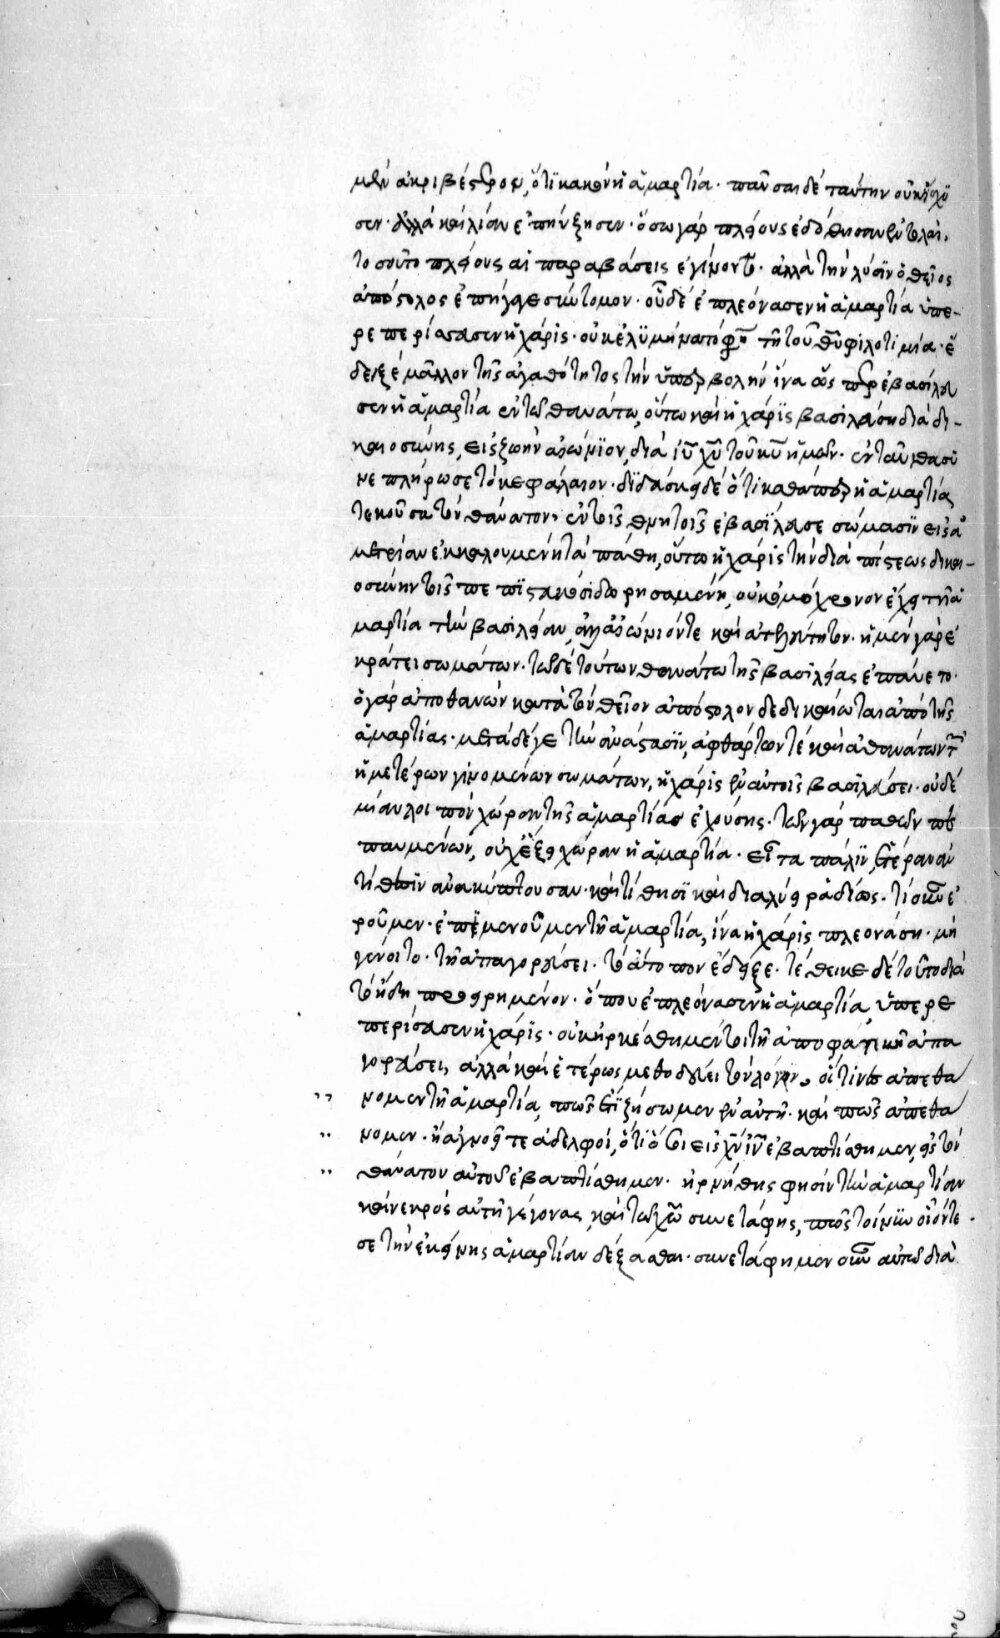 μὲν ἀκριβέστερον, ὅτι κακὸν ἡ ἁμαρτία· παῦσαι δὲ ταύτην οὐκ ἴσχυ
σεν· ἀλλὰ καὶ λίαν ἐπηύξησεν· ὅσω γὰρ πλείους ἐδόθησαν ἐντολαὶ,
τοσοῦτο πλείους αἱ παραβάσεις ἐγίνοντο· ἀλλὰ τὴν λύσιν ὁ θεῖος
ἀπόστολος ἐπήγαγε σύντομον· οὗ δὲ ἐπλεόνασεν ἡ ἁμαρτία ὑπε-
ρεπερίσσευσεν ἡ χάρις· οὐκ ἐλυμήνατό φησι τῆ τοῦ θῦ φιλοτιμία· ἔ
δειξε μᾶλλον τῆς ἀγαθότητος τὴν ὑπερβολὴν ἵνα ὥσπερ ἐβασίλευ
σεν ἡ ἁμαρτία ἐν τῶ θανάτω, οὕτω καὶ ἡ χάρις βασιλεύση διὰ δι-
καιοσύνης, εἰς ζωὴν αἰώνιον, διὰ ἰῦ χῦ τοῦ κῦ ἡμῶν· ἐνταῦθα συ
νεπλήρωσε τὸ κεφάλαιον· διδάσκει δὲ ὅτι καθάπερ ἡ ἁμαρτία
τεκοῦσα τὸν θάνατον, ἐν τοῖς θνητοῖς ἐβασίλευσε σώμασιν εἰς ἀ
μετρίαν ἐκκαλουμένη τὰ πάθη, οὕτω ἡ χάρις τὴν διὰ πίστεως δικαι-
οσύνην τοῖς πεπιστευκόσι δωρησαμένη, οὐχ ὁμόχρονον ἔχει τῆ ἁ
μαρτία τὴν βασιλείαν, ἀλλ' αἰώνιόν τε καὶ ἀτελεύτητον· ἡ μὲν γὰρ ἐ
κράτει σωμάτων· τῶ δὲ τούτων θανάτω τῆς βασιλείας ἐπαύετο·
ὁ γὰρ ἀποθανὼν κατὰ τὸν θεῖον ἀπόστολον δεδικαίωται ἀπὸ τῆς
ἁμαρτίας· μετὰ δέ γε τὴν ἀνάστασιν, ἀφθάρτων τὲ καὶ ἀθανάτων τῶν
ἡμετέρων γινομένων σωμάτων, ἡ χάρις ἐν αὐτοῖς βασιλεύσει· οὐδε
μίαν λοιπὸν χώραν τῆς ἁμαρτίας ἐχούσης· τῶν γὰρ παθῶν πε
παυμένων, οὐχ ἕξει χώραν ἡ ἁμαρτία· εἶτα πάλιν, ἑτέραν ἀν
τίθεσιν ἀνακύπτουσαν· καὶ τίθησι καὶ διαλύει ῥαδίως· τί οὖν ἐ
ροῦμεν· ἐπιμενοῦμεν τῆ ἁμαρτία, ἵνα ἡ χάρις πλεονάση· μὴ
γένοιτο· τῆ ἀπαγορεύσει· τὸ ἄτοπον ἔδειξε· τέθεικε δὲ τοῦτο διὰ
τὸ ἤδη προειρημένον· ὅπου ἐπλεόνασεν ἡ ἁμαρτία, ὑπερε
περίσσευσεν ἡ χάρις· οὐκ ἠρκέσθη μέντοι τῆ ἀποφατικῆ ἀπα
γορεύσει, ἀλλὰ καὶ ἑτέρως μεθοδεύει τὸν λόγον· οἵτινες ἀπεθά
νομεν τῆ ἁμαρτία, πῶς ἔτι ζήσωμεν ἐν αὐτῆ· καὶ πῶς ἀπεθά
νομεν· ἢ ἀγνοεῖτε ἀδελφοί, ὅτι ὅσοι εἰς χν ἰν ἐβαπτίσθημεν, εἰς τὸν
θάνατον αὐτοῦ ἐβαπτίσθημεν· ἠρνήθης φησὶν τὴν ἁμαρτίαν
καὶ νεκρὸς αὐτῆ γέγονας, καὶ τῶ χῶ συνετάφης, πῶς τοίνυν οἷόν τε
σε τὴν ἐκείνης ἁμαρτίαν δέξασθαι· συνετάφημεν οὖν αὐτῶ διὰ